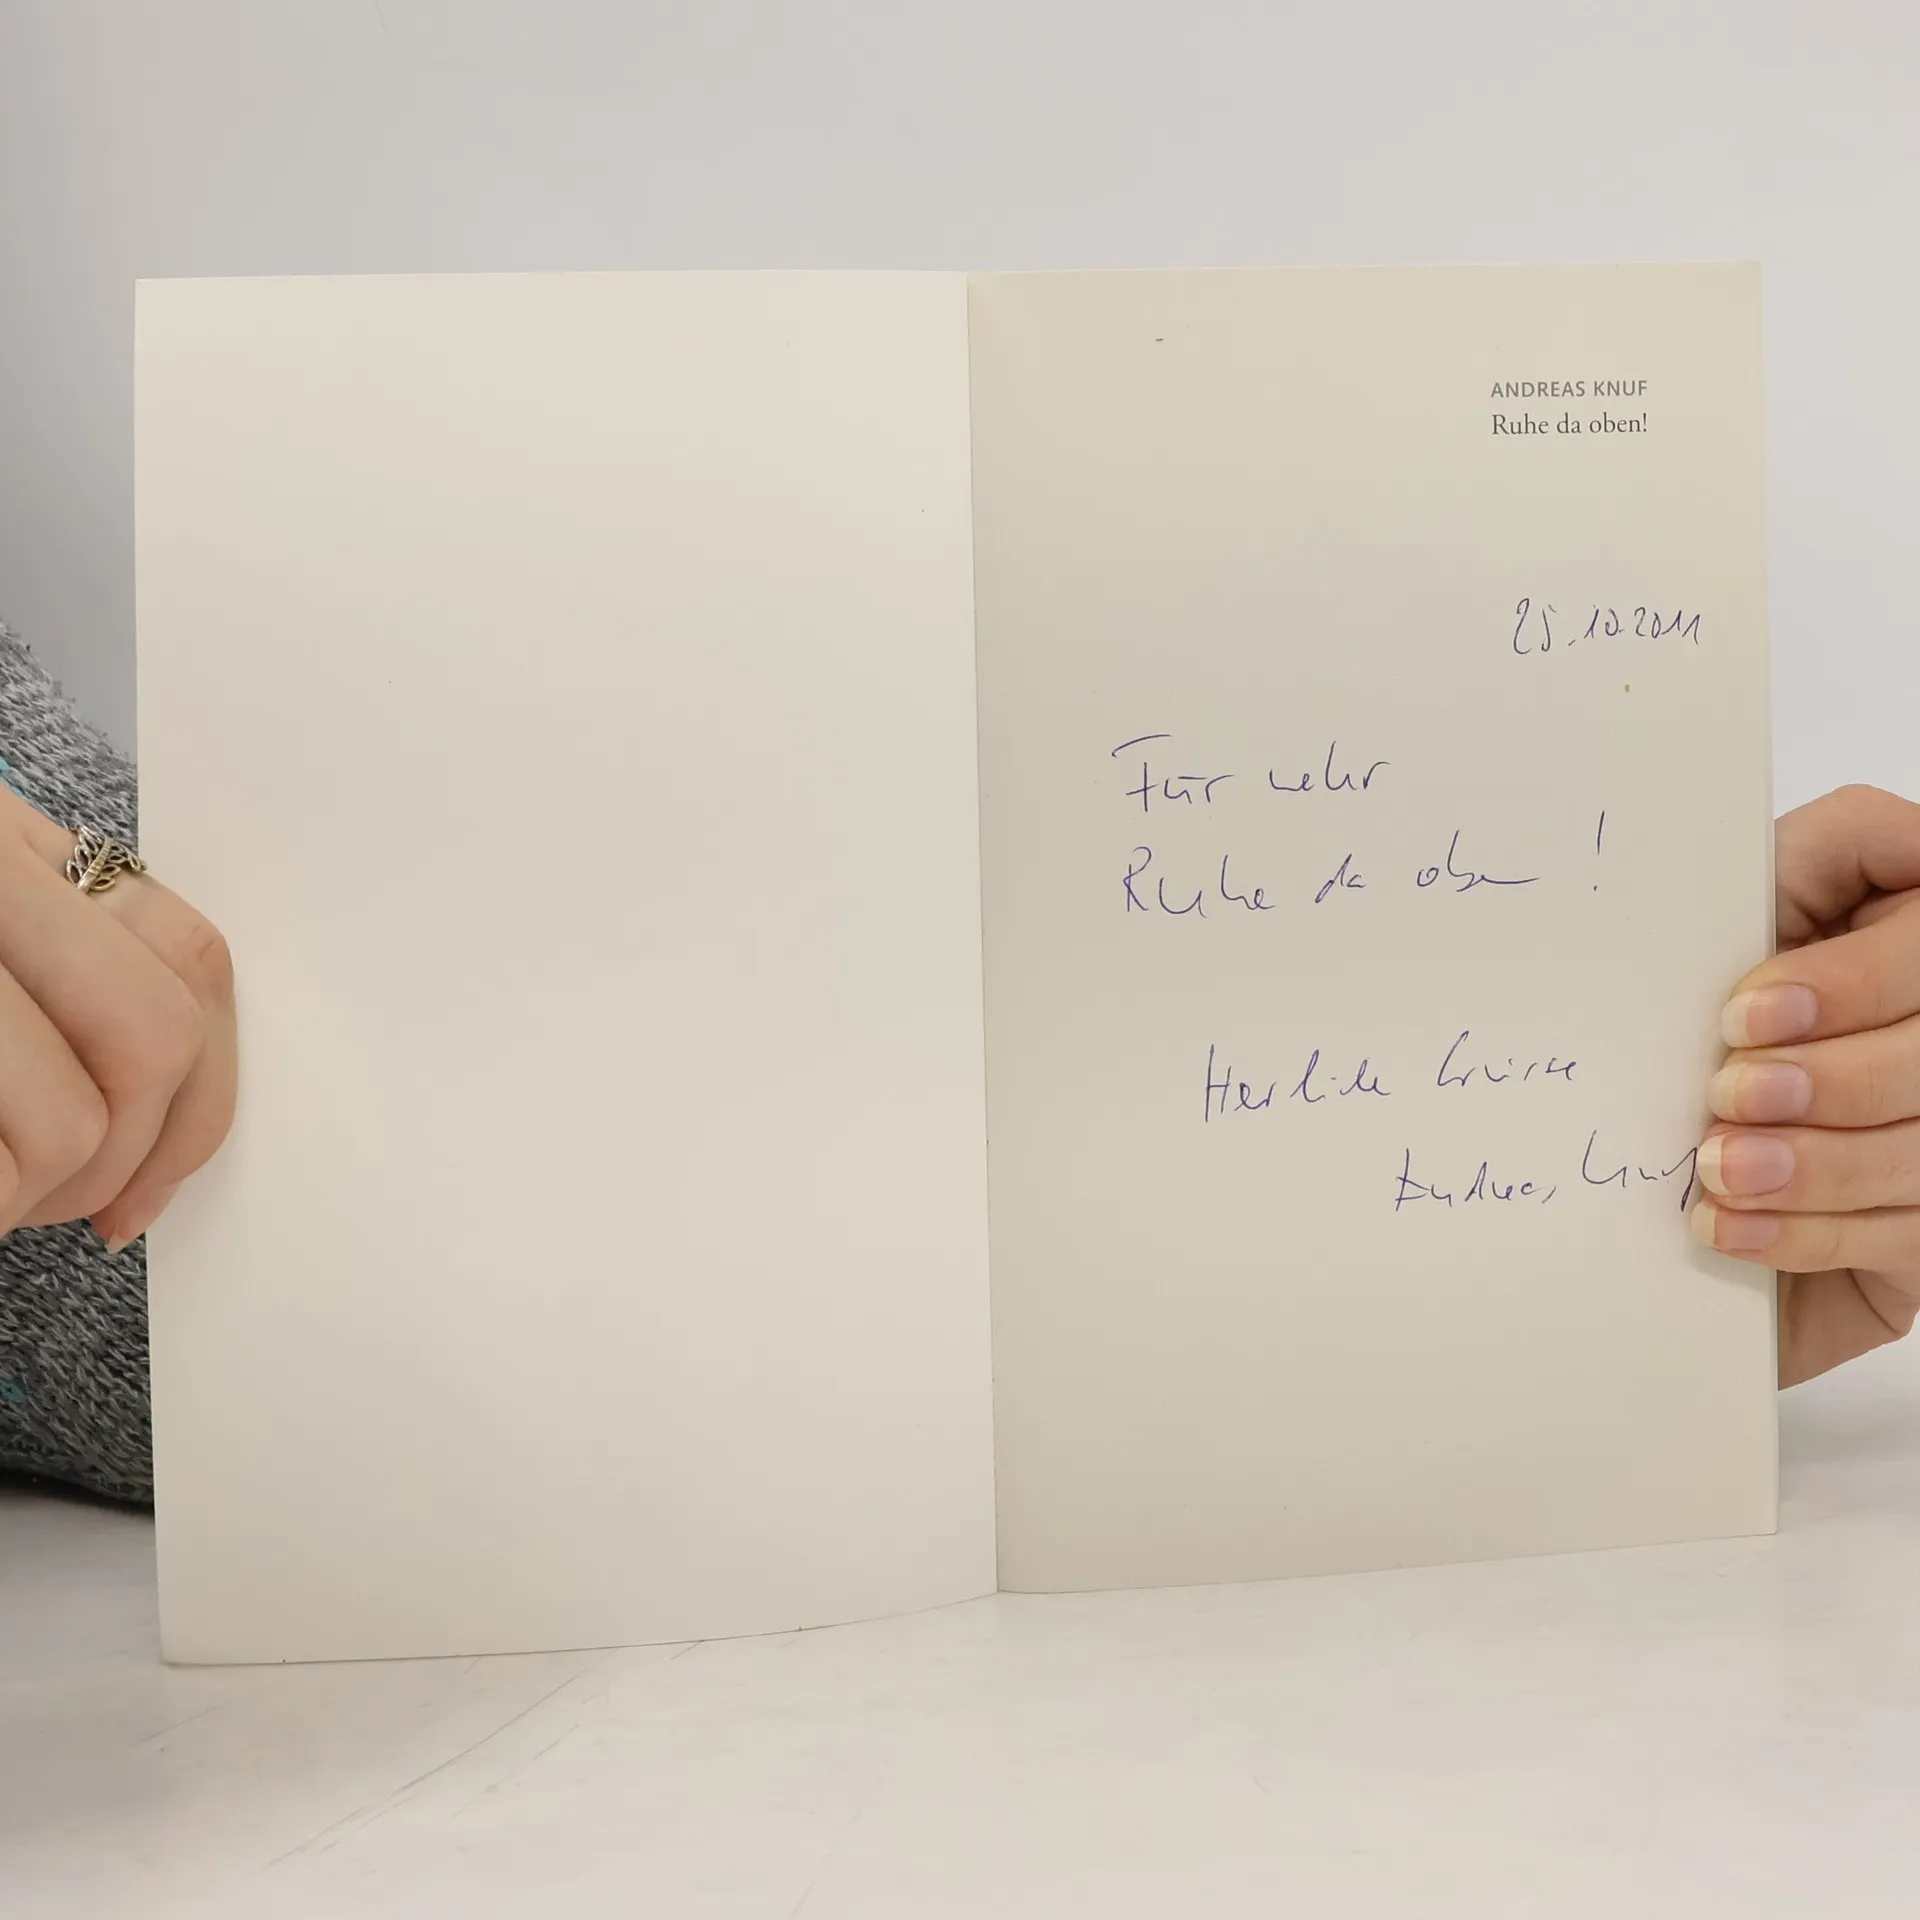 ANDREAS KNUF
Ruhe da oben!
25.10.2011
Für mehr
Ruhe da oben!
Herzliche Grüsse
Andreas Knuf